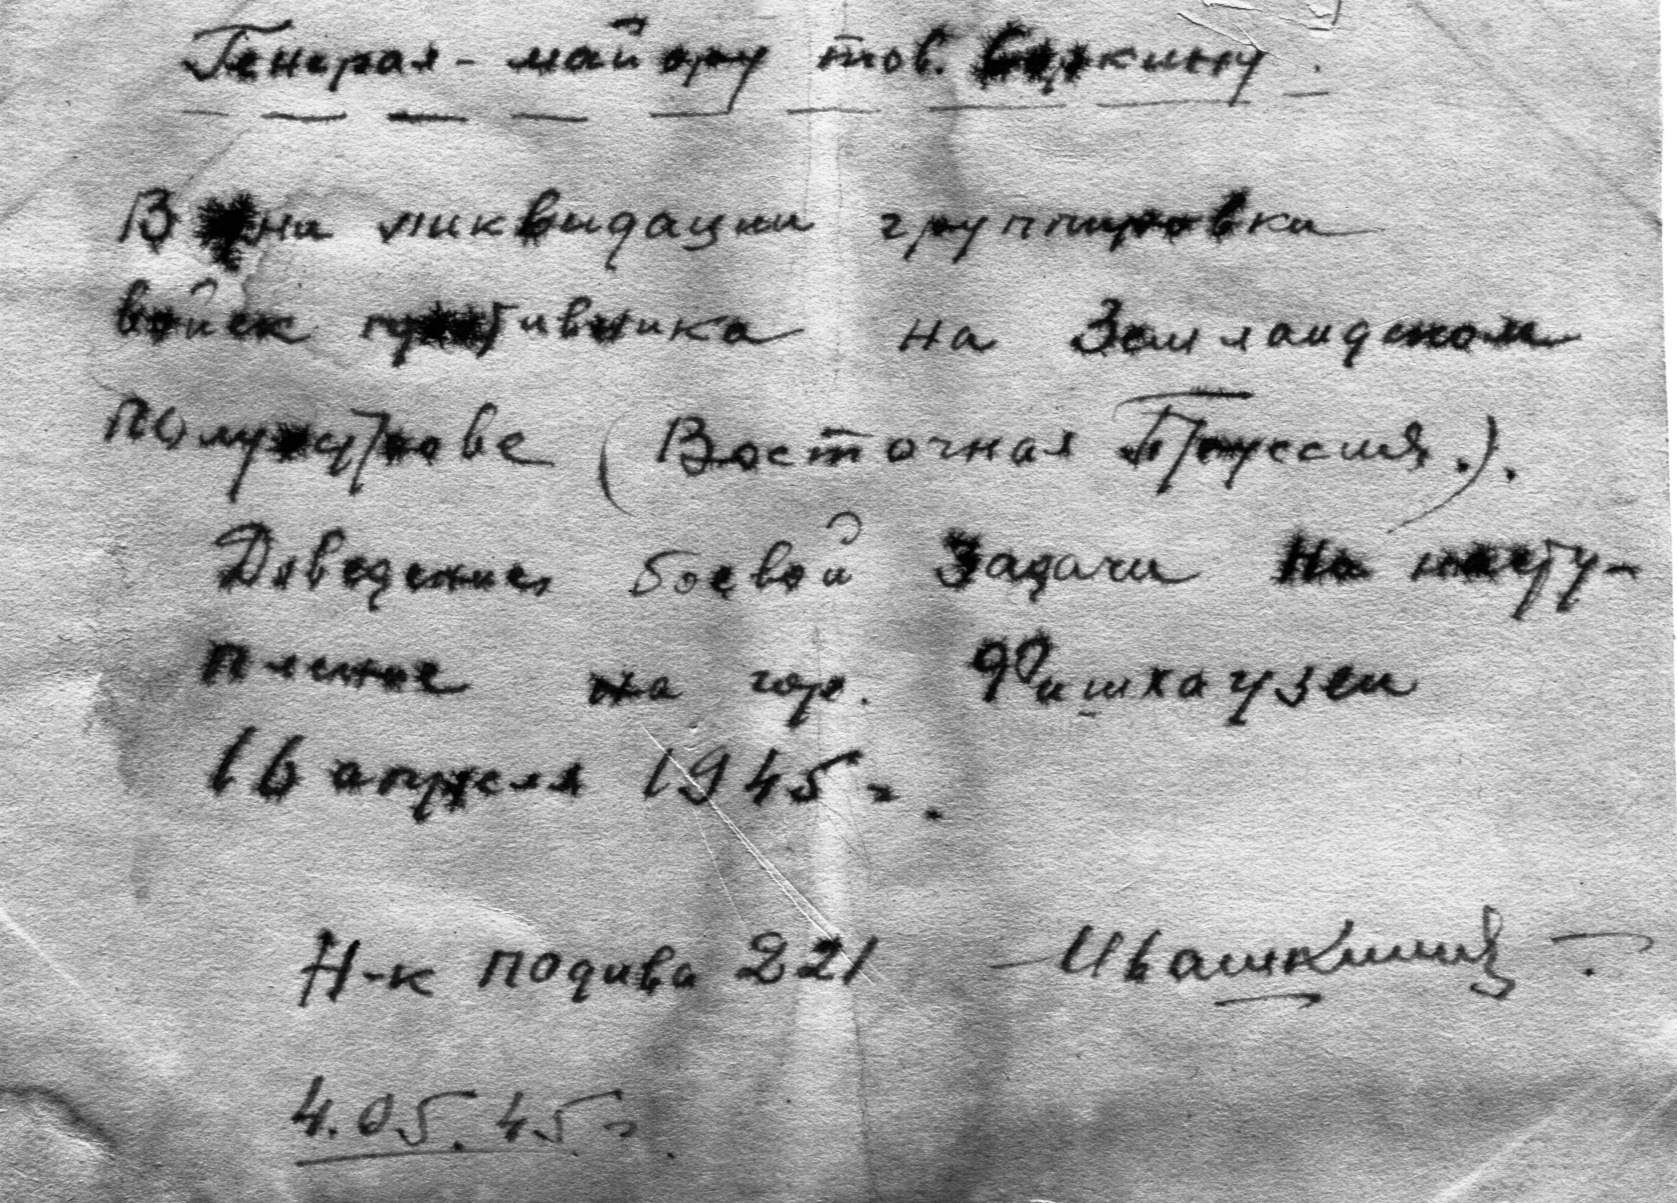 Генерал-майору тов.
В дни ликвидации группировки
войск противника на Земландском
полуострове (Восточная Пруссия.).
Доведение боевой задачи на насту-
пление на гор. Фишхаузен
16 апреля 1945 г.
Н-к подива 221 Ивашкин
4.05.45 г.